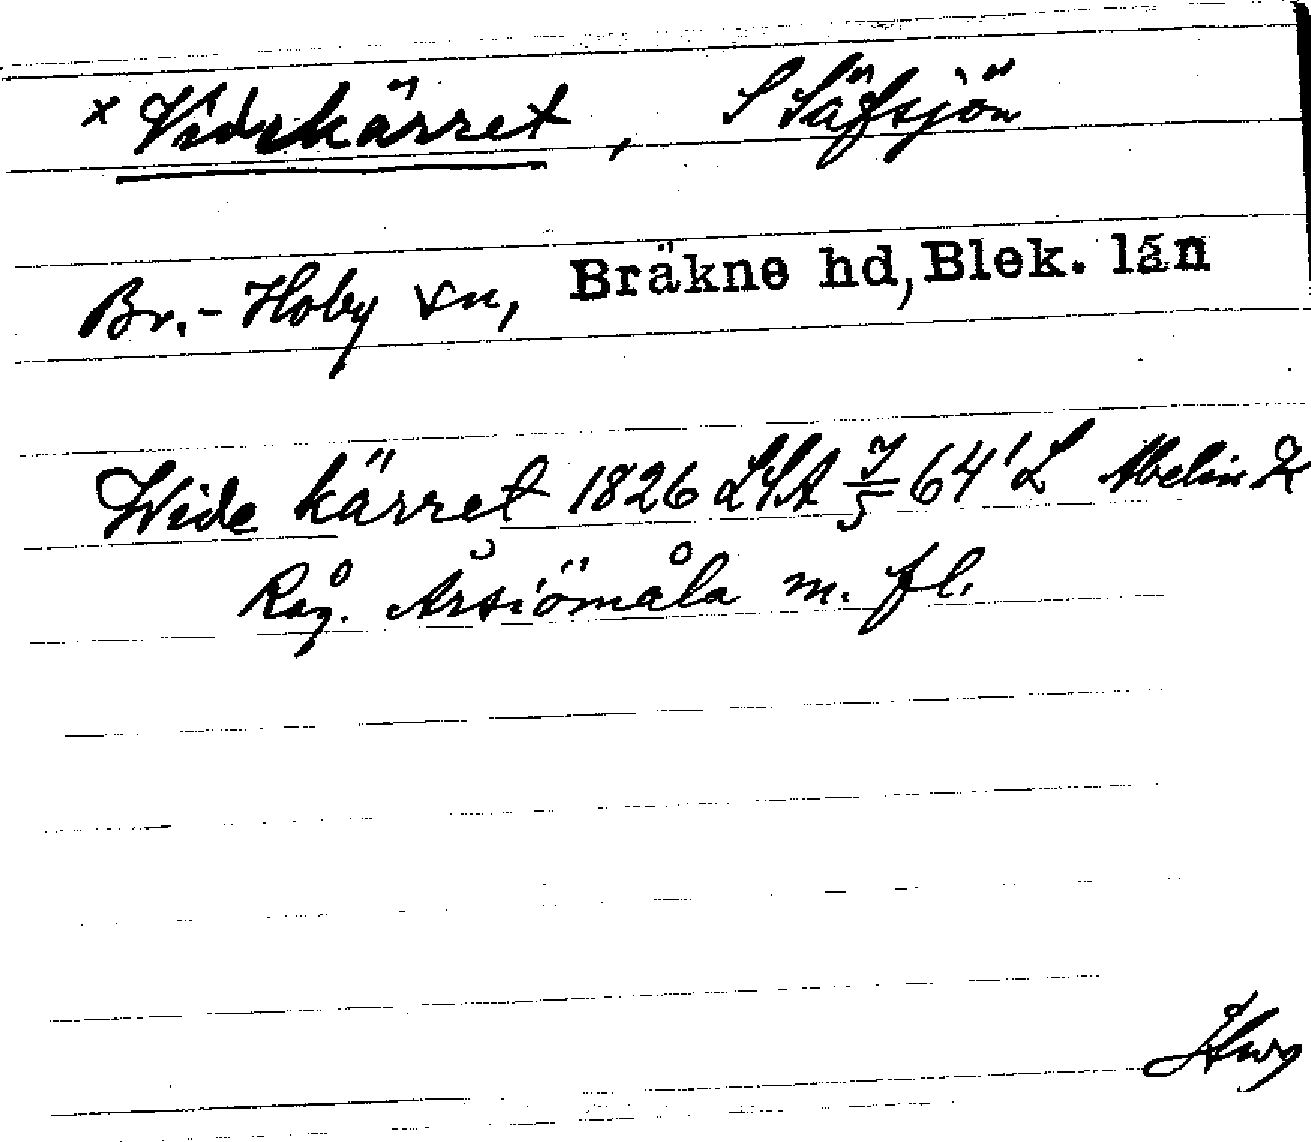 x Videkärret, S Säfsjön
Br.-Hoby sn, Bräkne hd, Blek. län
Wide kärret 1826 LSA 7/5 64' L Abelin K
Råg. Årsiömåla m. fl.